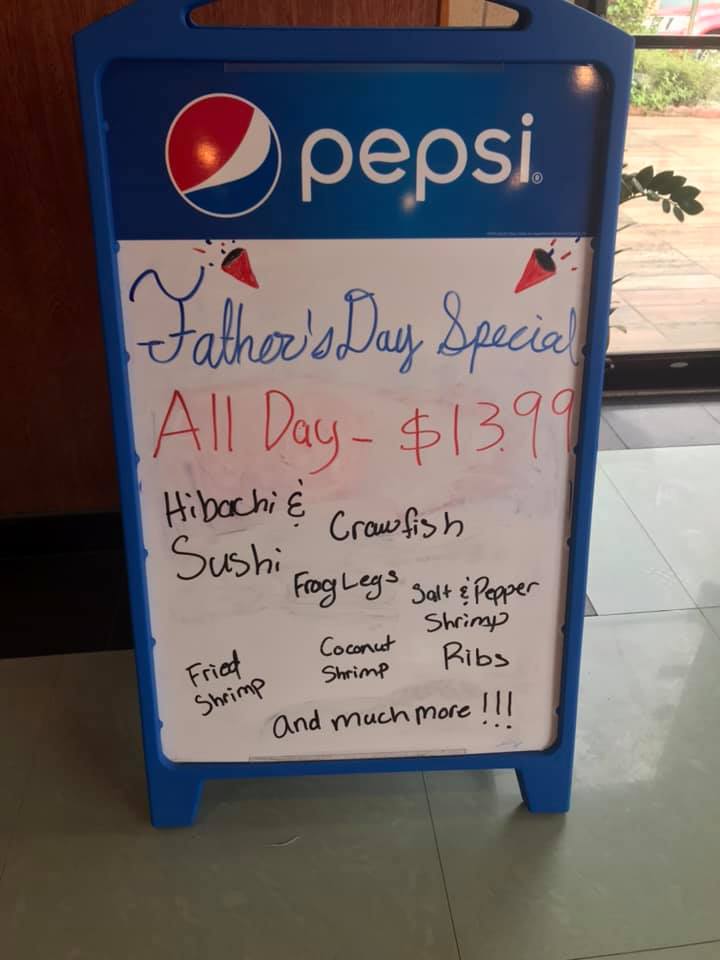 pepsi®
Father's Day Special
All Day - $13.99
Hibachi &
Sushi
Crawfish
Frog Legs
Salt & Pepper
Shrimp
Fried
Shrimp
Coconut
Shrimp
Ribs
and much more !!!